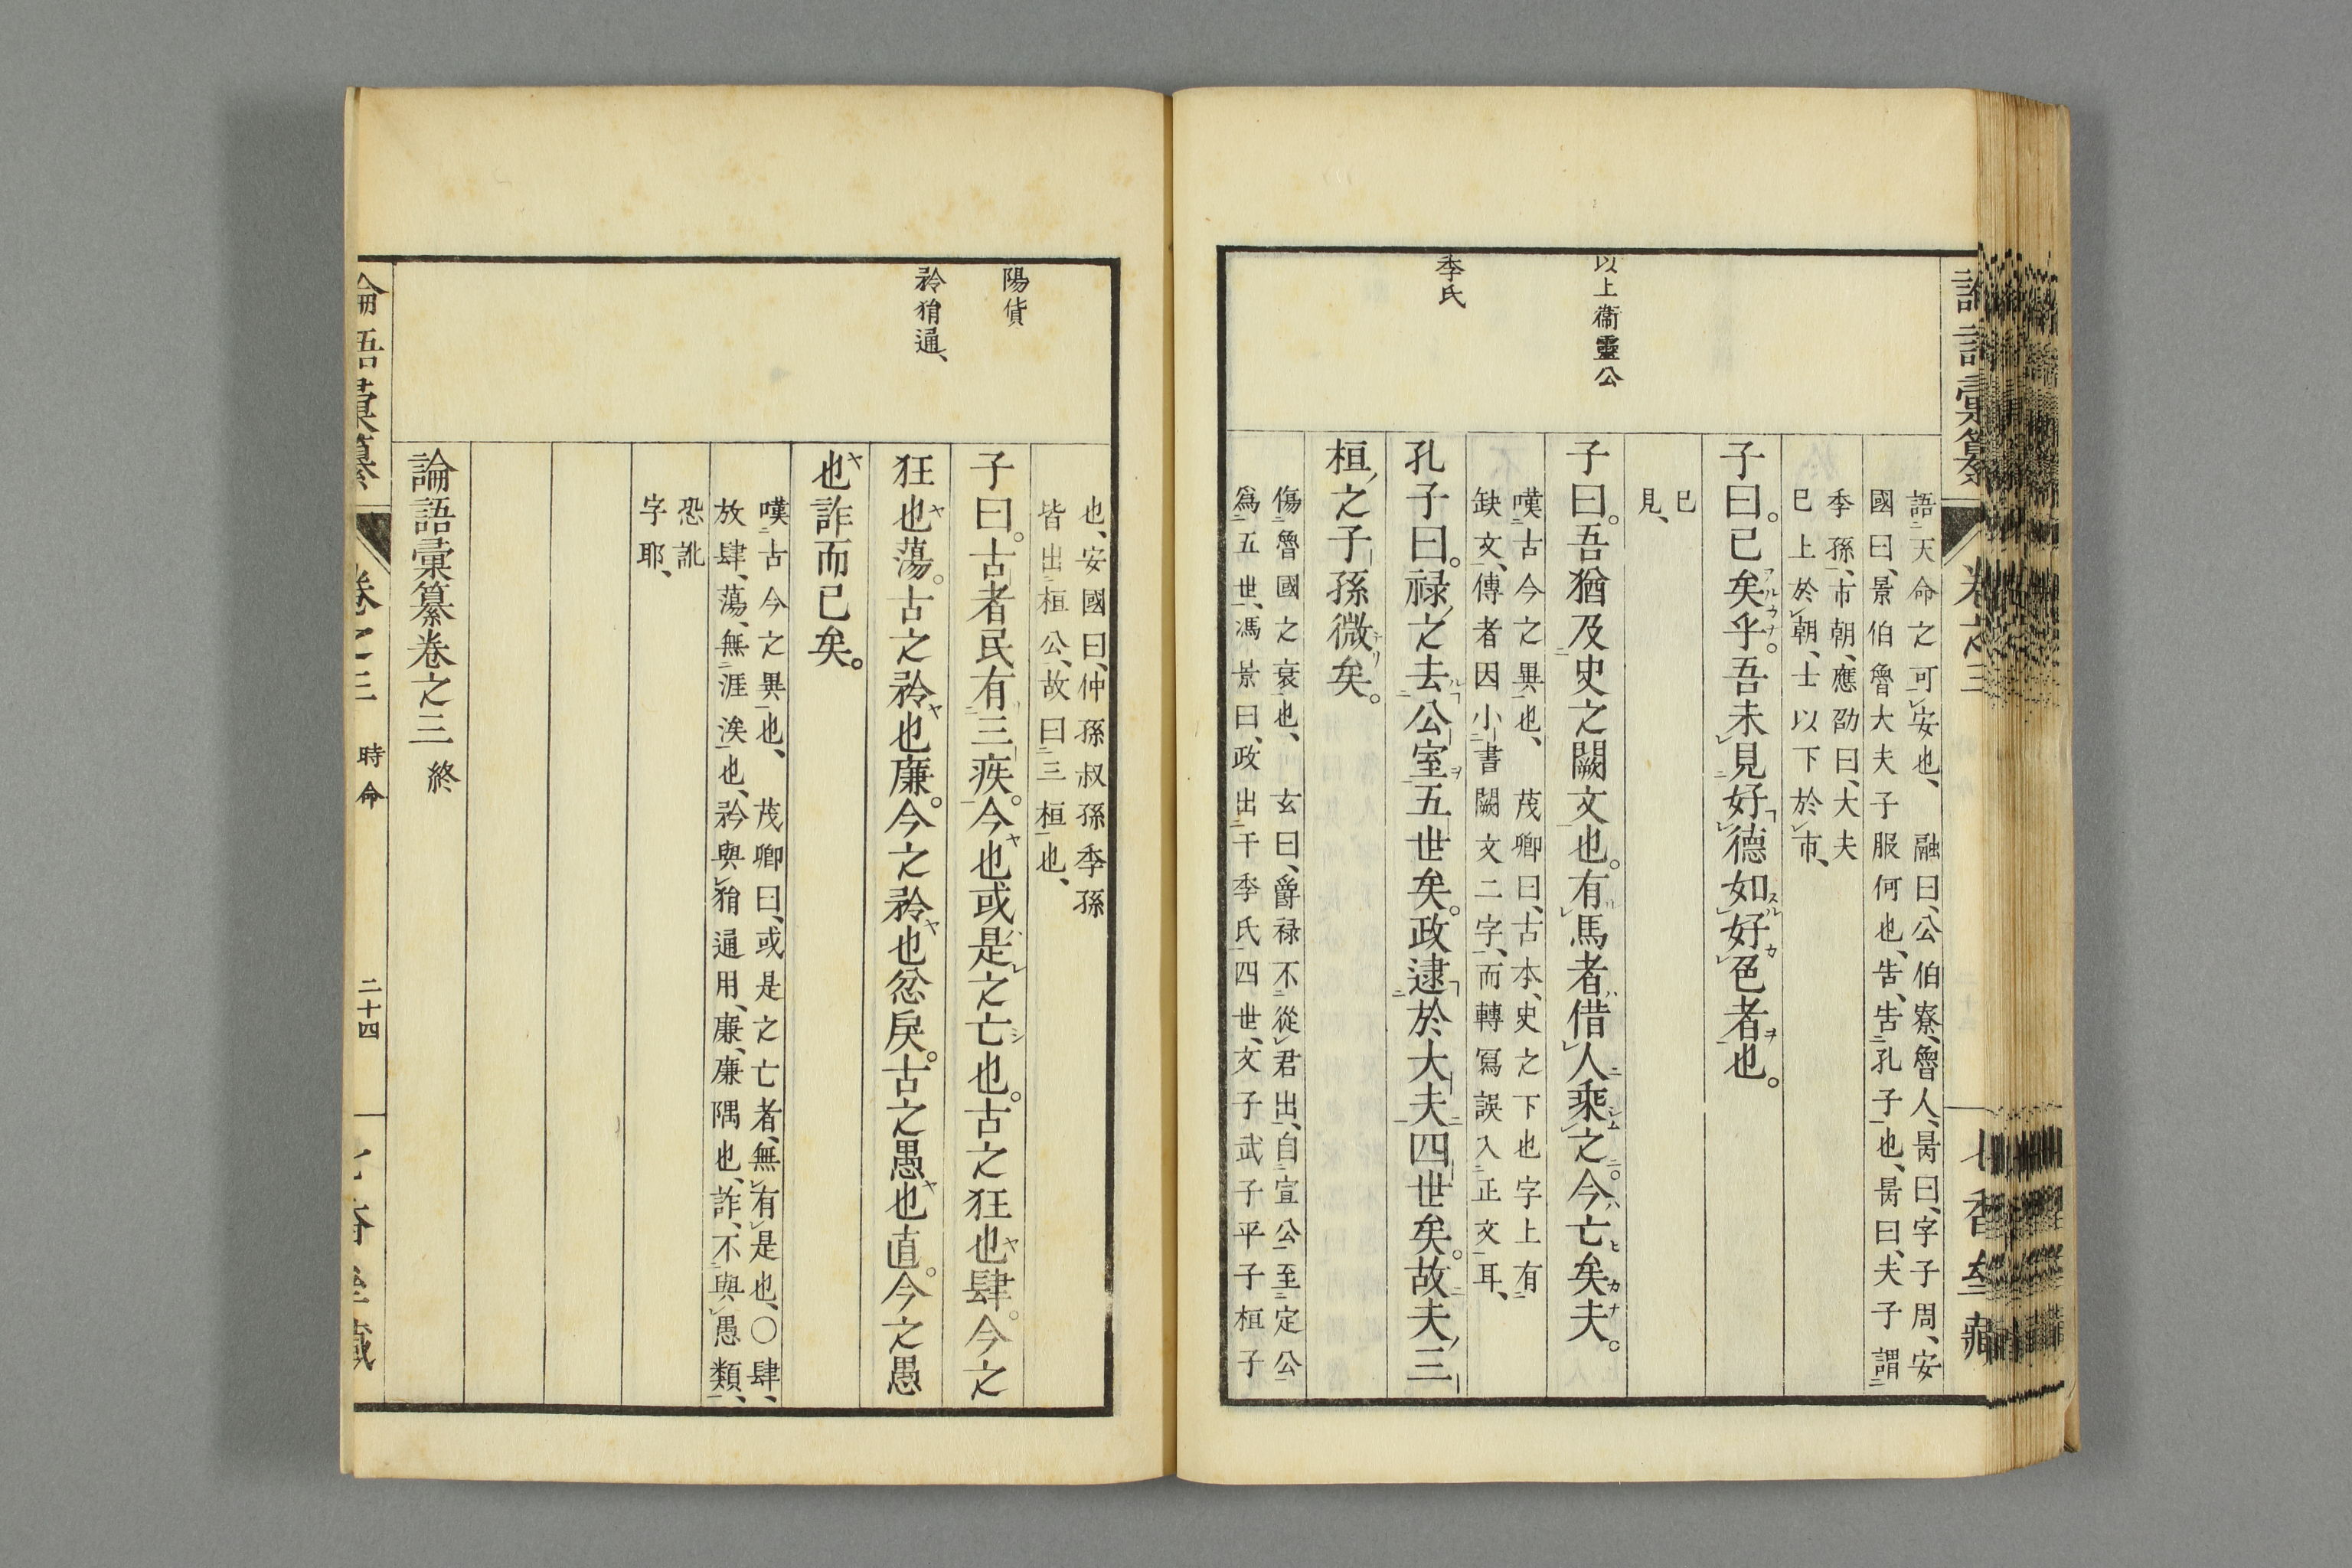 以上衞靈公
季氏
語天命之可安也、融曰、公伯寮、魯人、曷曰、字子周、安
國曰、景伯魯大夫子服何也、吿、吿孔子也、曷曰、夫子謂
季孫、市朝、應劭曰、大夫
已上於朝、士以下於市、
子曰。已矣乎。吾未見好德如好色者也。
已
見、
子曰。吾猶及史之闕文也。有馬者借人乘之。今亡矣夫。
嘆古今之異也、茂卿曰、古本、史之下也字上有
缺文、傳者因小書闕文二字、而轉寫誤入正文耳、
孔子曰。祿之去公室五世矣。政逮於大夫四世矣。故夫三
桓之子孫微矣。
傷魯國之衰也、玄曰、爵祿不從君出、自宣公至定公
爲五世、馮景曰、政出于季氏四世、文子武子平子桓子
陽貨
矜狷通、
也、安國曰、仲孫叔孫季孫
皆出桓公、故曰三桓也、
子曰。古者民有三疾。今也或是之亡也。古之狂也肆。今之
狂也蕩。古之矜也廉。今之矜也忿戾。古之愚也直。今之愚
也詐而已矣。
嘆古今之異也、茂卿曰、或是之亡者、無有是也、〇肆、
放肆、蕩、無涯涘也、矜與狷通用、廉、廉隅也、詐、不與愚類、
恐訛
字耶、
論語彙纂卷之三 終
論語彙纂 卷之三 時命 二十四